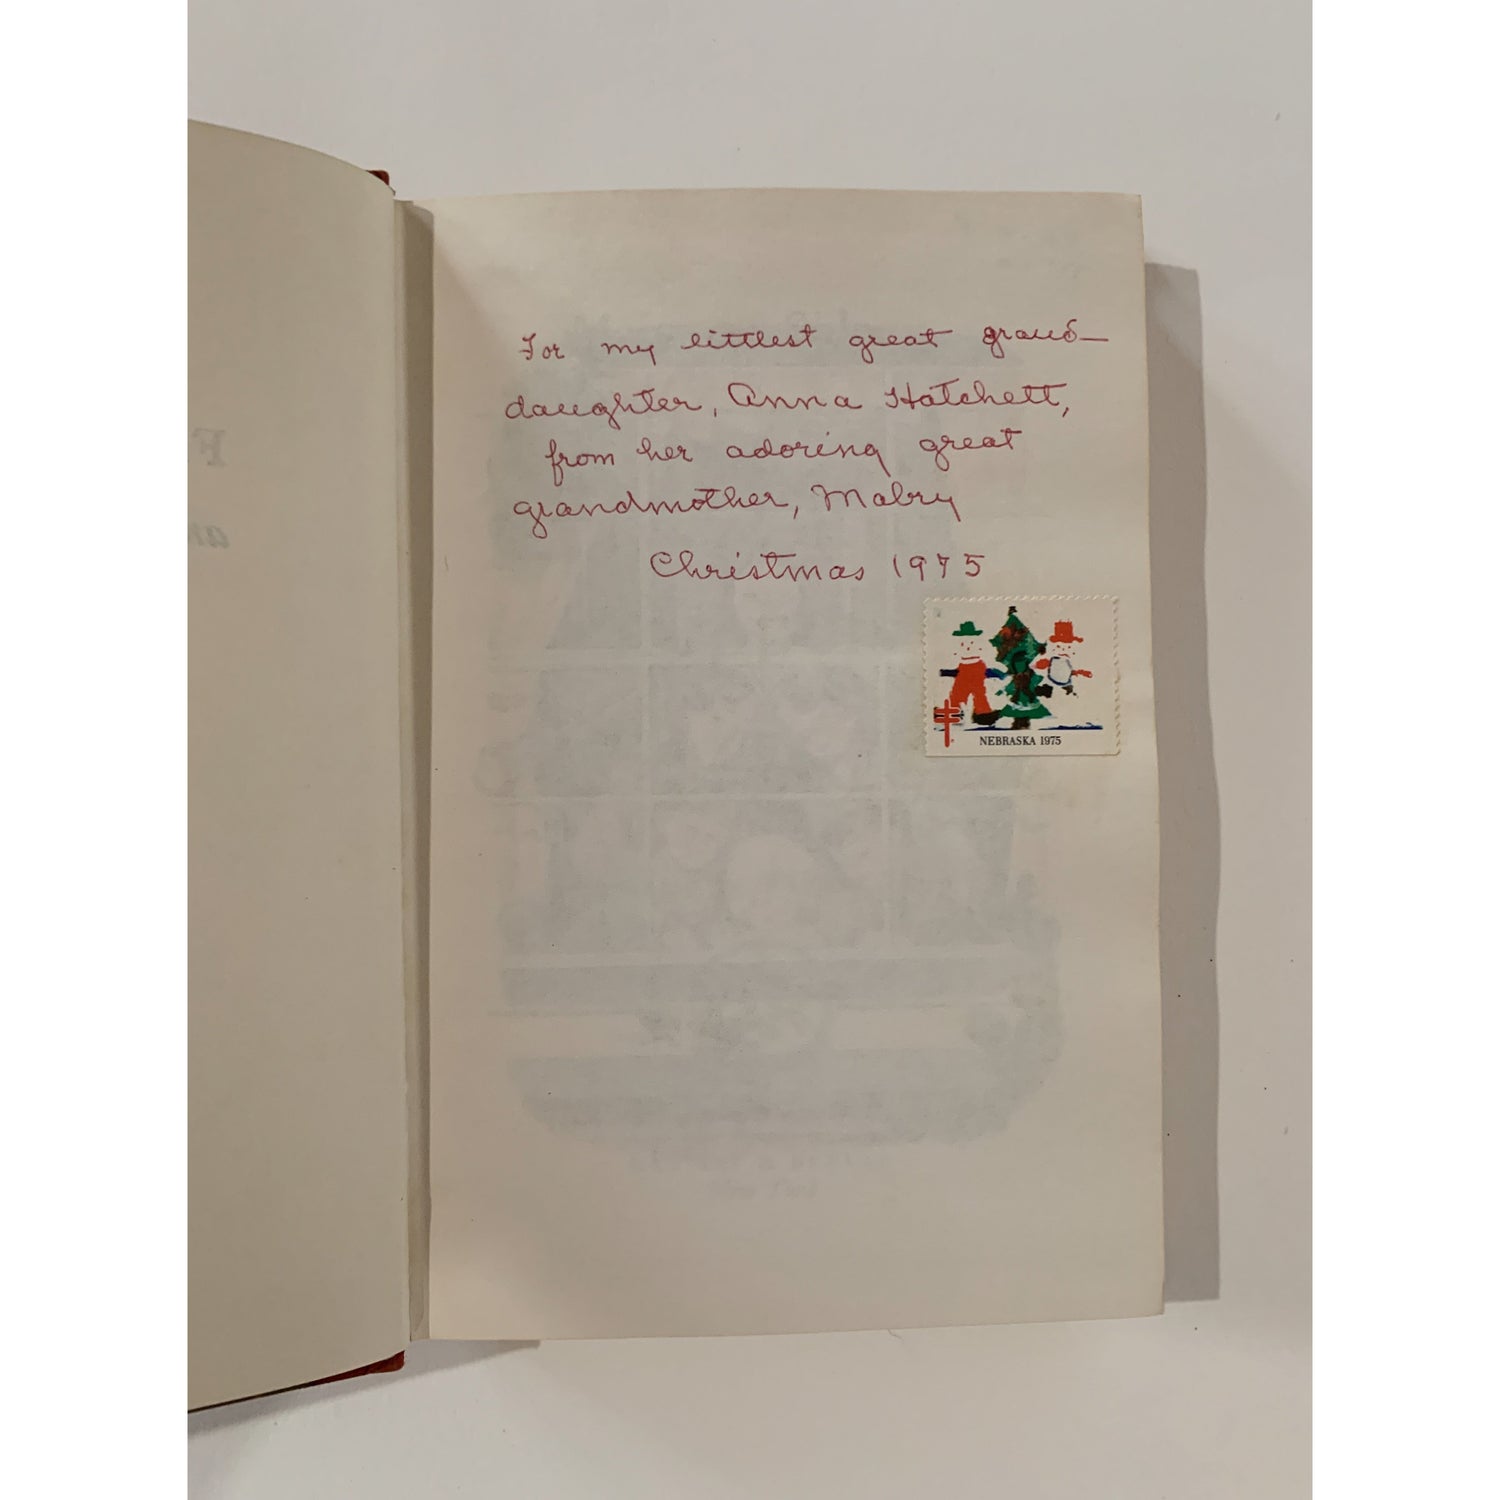 For my littlest great grand-
daughter, Anna Hatchett,
from her adoring great
grandmother, Mabry
Christmas 1975
NEBRASKA 1975
F
an